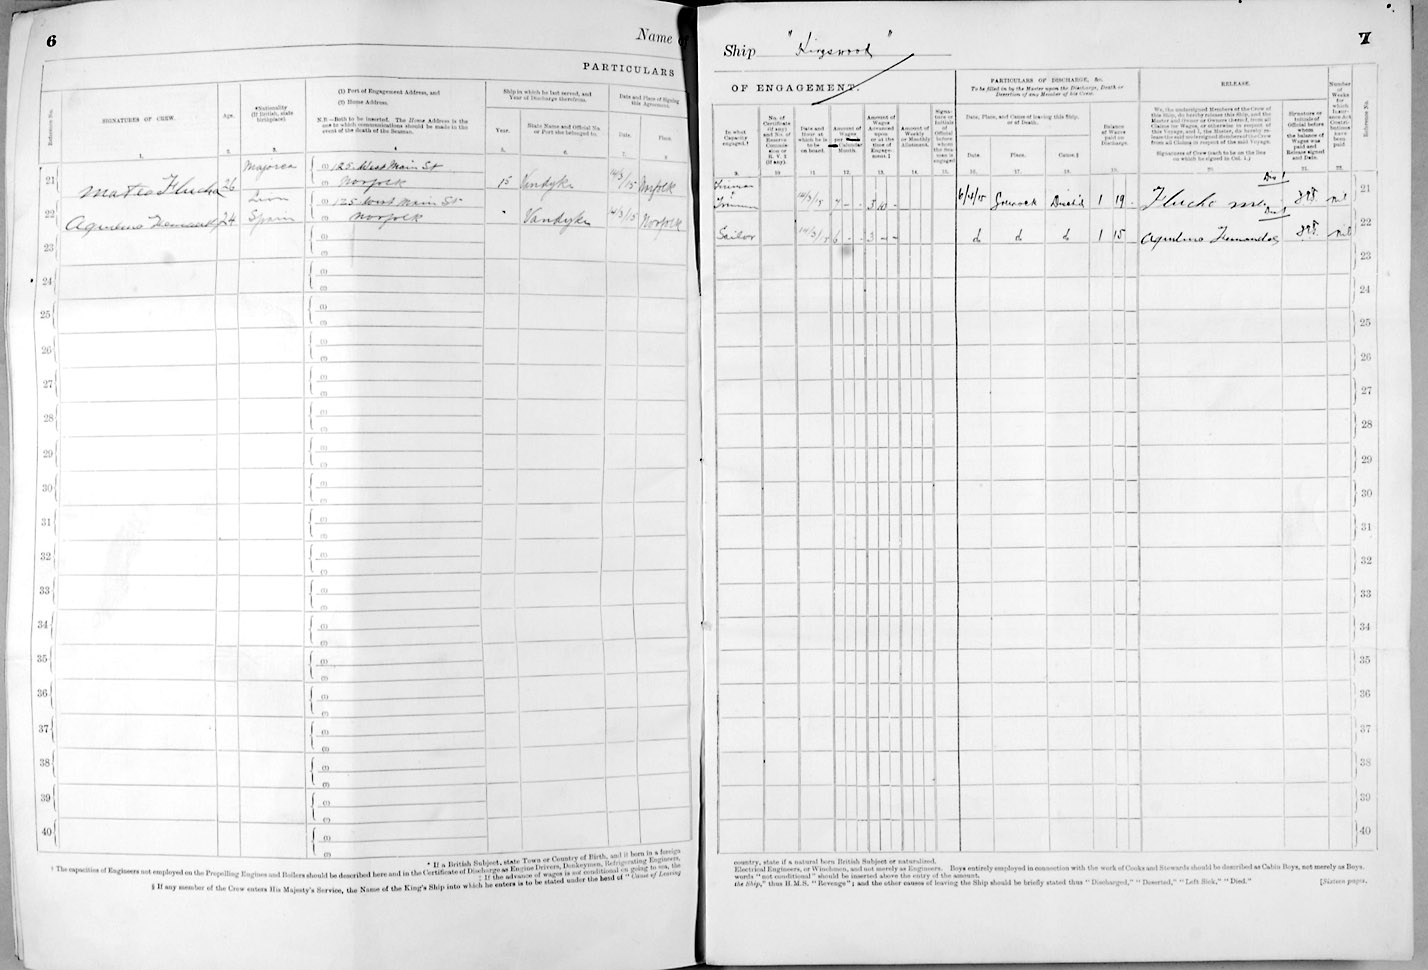 6
Name of
PARTICULARS
Reference No.
SIGNATURES OF CREW.
Age.
*Nationality
(If British, state
birthplace).
(1) Port of Engagement Address, and
(2) Home Address.
N.B.—Both to be inserted. The Home Address is the
one to which communications should be made in the
event of the death of the Seaman.
Ship in which he last served, and
Year of Discharge therefrom.
Year.
State Name and Official No.
or Port she belonged to.
Date and Place of Signing
this Agreement.
Date.
Place.
21
Mateo Flucha
26
Majorca
(1) 125 West Main St
(2) Norfolk
15
Vandyke
14/3/15
Norfolk
22
24
Spain
125 West Main St
Norfolk
"
Vandyke
14/3/15
Norfolk
23
24
25
26
27
28
29
30
31
32
33
34
35
36
37
38
39
40
* If a British Subject, state Town or Country of Birth, and if born in a foreign
† The capacities of Engineers not employed on the Propelling Engines and Boilers should be described here and in the Certificate of Discharge as Engine Drivers, Donkeymen, Refrigerating Engineers,
‡ If the advance of wages is not conditional on going to sea, the
§ If any member of the Crew enters His Majesty's Service, the Name of the King's Ship into which he enters is to be stated under the head of "Cause of Leaving
Ship "Kingswood"
7
OF ENGAGEMENT.
In what
Capacity
engaged.†
No. of
Certificate
(if any)
and No. of
Reserve
Commis-
sion or
R. V. 2
(if any).
Date and
Hour at
which he is
to be
on board.
Amount of
Wages
per Calendar
Month.
Amount of
Wages
Advanced
upon
or at the
time of
Engage-
ment.‡
Amount of
Weekly
or Monthly
Allotment.
Signa-
ture or
Initials
of
Official
before
whom
the Sea-
man is
engaged
PARTICULARS OF DISCHARGE, &c.
To be filled in by the Master upon the Discharge, Death or
Desertion of any Member of his Crew.
Date, Place, and Cause of leaving this Ship,
or of Death.
Date.
Place.
Cause.§
Balance
of Wages
paid on
Discharge.
RELEASE.
We, the undersigned Members of the Crew of
this Ship, do hereby release this Ship, and the
Master and Owner or Owners thereof, from all
Claims for Wages, or otherwise in respect of
this Voyage, and I, the Master, do hereby re-
lease the said undersigned Members of the Crew
from all Claims in respect of the said Voyage.
Signatures of Crew (each to be on the line
on which he signed in Col. 1.)
Signature or
Initials of
Official before
whom
the balance of
Wages was
paid and
Release signed
and Date.
Number
of
Weeks
for
which
Insur-
ance Act
Contri-
butions
have
been
paid.
Reference No.
14/3/15
7 - -
3 10 -
6/4/15
Greenock
1 19 -
Flucha
nil
21
Sailor
6 - -
3 - -
do
do
do
1 15 -
22
23
24
25
26
27
28
29
30
31
32
33
34
35
36
37
38
39
40
country, state if a natural born British Subject or naturalized.
Electrical Engineers, or Winchmen, and not merely as Engineers. Boys entirely employed in connection with the work of Cooks and Stewards should be described as Cabin Boys, not merely as Boys.
words "not conditional" should be inserted above the entry of the amount.
the Ship," thus H.M.S. "Revenge"; and the other causes of leaving the Ship should be briefly stated thus "Discharged," "Deserted," "Left Sick," "Died."
[Sixteen pages.